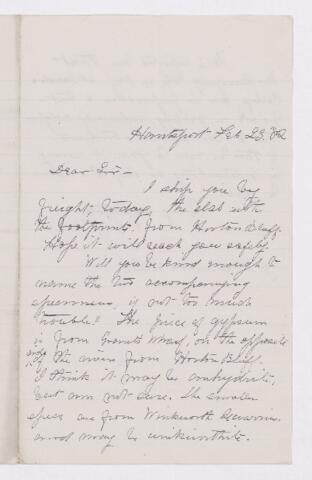 Hantsport Feb 23,
Dear Sir—
I ship you by
freight, today, the slab with
the footprints from Horton Bluff.
Hope it will reach you safely.
Will you be kind enough to
name the two accompanying
specimens, if not too much
trouble? The piece of gypsum
is from Grants Wharf, on the opposite
side of the river from Horton Bluff.
I think it may be anhydrite,
but am not sure. The smaller
specs are from Wentworth Quarries
and may be